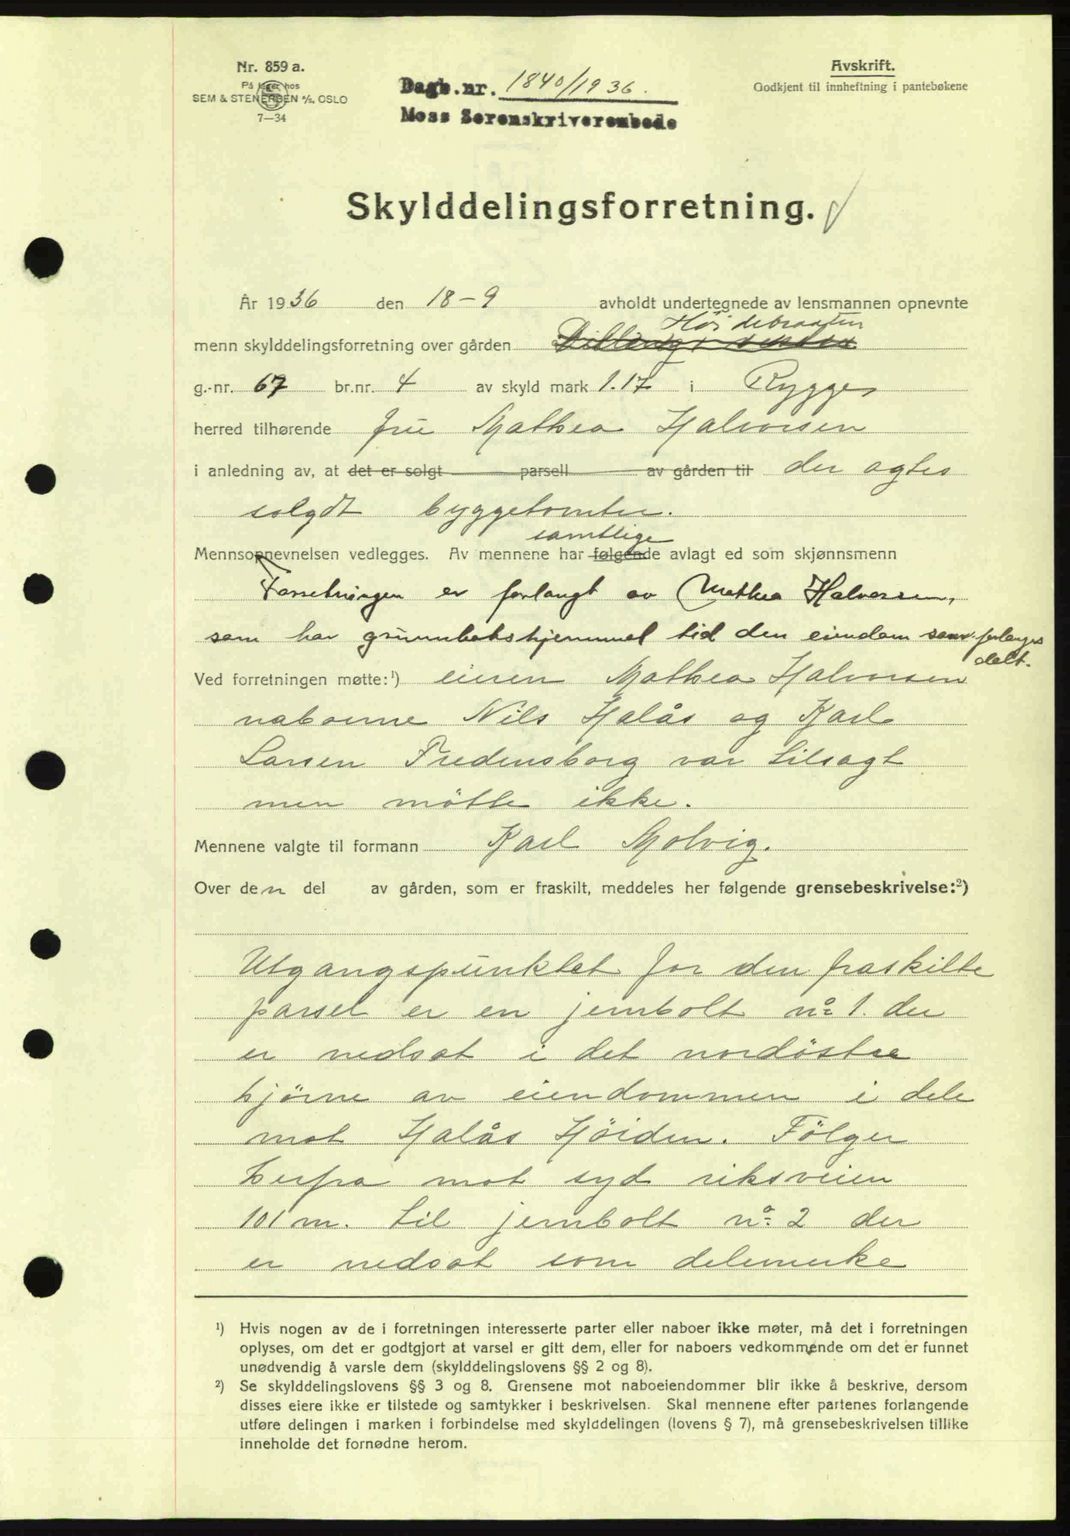 Nr. 859 a.
På lager hos
SEM & STENERSEN A/S, OSLO
7—34
Dagb.nr. 1840/1936.
Moss Sorenskriverembede
Avskrift.
Godkjent til innheftning i pantebøkene
Skylddelingsforretning.
År 1936 den 18-9 avholdt undertegnede av lensmannen opnevnte
Höidebraaten
menn skylddelingsforretning over gården
g.-nr. 67 br.nr. 4 av skyld mark 1.17 i Rygge
herred tilhørende fru Mathea Halvorsen
i anledning av, at det er solgt parsell av gården til der agtes
solgdt byggetomter.
samtlige
Mennsopnevnelsen vedlegges. Av mennene har følgende avlagt ed som skjønnsmenn
Forretningen er forlangt av Mathea Halvorsen,
som har grunnbokshjemmel tid den eiendom som forlanges
delt.
Ved forretningen møtte:¹) eieren Mathea Halvorsen
naboerne Nils Halås og Karl
Larsen Fredensborg var tilsagt
men mötte ikke.
Mennene valgte til formann Karl Molvig.
Over den del av gården, som er fraskilt, meddeles her følgende grensebeskrivelse:²)
Utgangspunktet for den fraskilte
parsel er en jernbolt nº 1. der
er nedsat i det nordöstre
hjörne av eiendommen i dele
mot Halås Höiden. Fölger
herfra mot syd riksveien
101 m. til jernbolt nº 2 der
er nedsat som delemerke
¹) Hvis nogen av de i forretningen interesserte parter eller naboer ikke møter, må det i forretningen
oplyses, om det er godtgjort at varsel er gitt dem, eller for naboers vedkommende om det er funnet
unødvendig å varsle dem (skylddelingslovens §§ 2 og 8).
²) Se skylddelingslovens §§ 3 og 8. Grensene mot naboeiendommer blir ikke å beskrive, dersom
disses eiere ikke er tilstede og samtykker i beskrivelsen. Skal mennene efter partenes forlangende
utføre delingen i marken i forbindelse med skylddelingen (lovens § 7), må grensebeskrivelsen tillike
inneholde det fornødne herom.